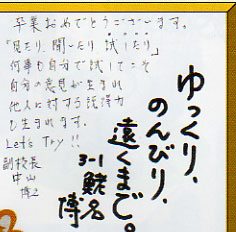 卒業おめでとうございます。
「見たり、聞いたり 試したり」
何事も自分で試してこそ
自分の意見が生まれ
他人に対する説得力
も生まれます。
Let's Try !!
副校長
中山
博之
ゆっくり、
のんびり、
遠くまで。
3-1 鯱名
博